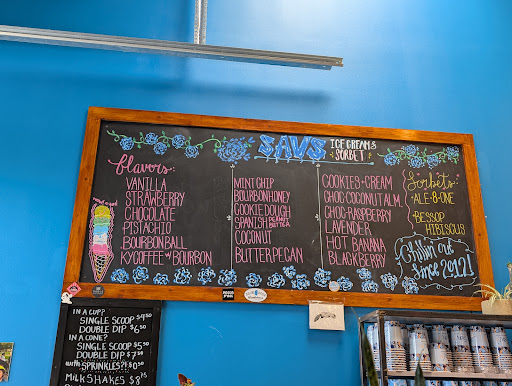 SAVS
ICE CREAM &
SORBET
flavors:
VANILLA
STRAWBERRY
CHOCOLATE
PISTACHIO
BOURBON BALL
KY COFFEE w/ BOURBON
MINT CHIP
BOURBON HONEY
COOKIE DOUGH
SPANISH PEANUT BUTTER
COCONUT
BUTTER PECAN
COOKIES + CREAM
CHOC COCONUT ALM.
CHOC-RASPBERRY
LAVENDER
HOT BANANA
BLACKBERRY
Sorbets:
ALE-8-ONE
BESSOP
HIBISCUS
Chillin' out
Since 2019!
IN A CUP?
SINGLE SCOOP $4.50
DOUBLE DIP $6.50
IN A CONE?
SINGLE SCOOP $5.50
DOUBLE DIP $7.50
with SPRINKLES?!
MILKSHAKES $8.75